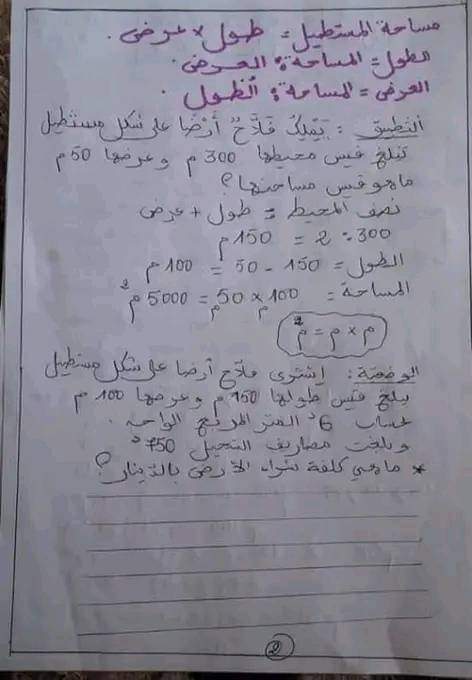 مساحة المستطيل = طول × عرض .
الطول = المساحة : العرض .
العرض = المساحة : الطول .
التطبيق : يَمْلِكُ فَلَّاحٌ أَرْضًا على شكل مستطيل
تبلغ قيس محيطها 300 م وعرضها 50 م
ماهو قيس مساحتها ؟
نصف المحيط = طول + عرض
300 : 2 = 150 م
الطول = 150 - 50 = 100 م
المساحة = 100 م × 50 م = 5000 م²
م × م = م²
الوضعية : إشترى فلاح أرضا على شكل مستطيل
يبلغ قيس طولها 150 م وعرضها 100 م
بحساب 6د المتر المربع الواحد .
وبلغت مصاريف التسجيل 750د
* ماهي كلفة شراء الأرض بالدينار ؟
2